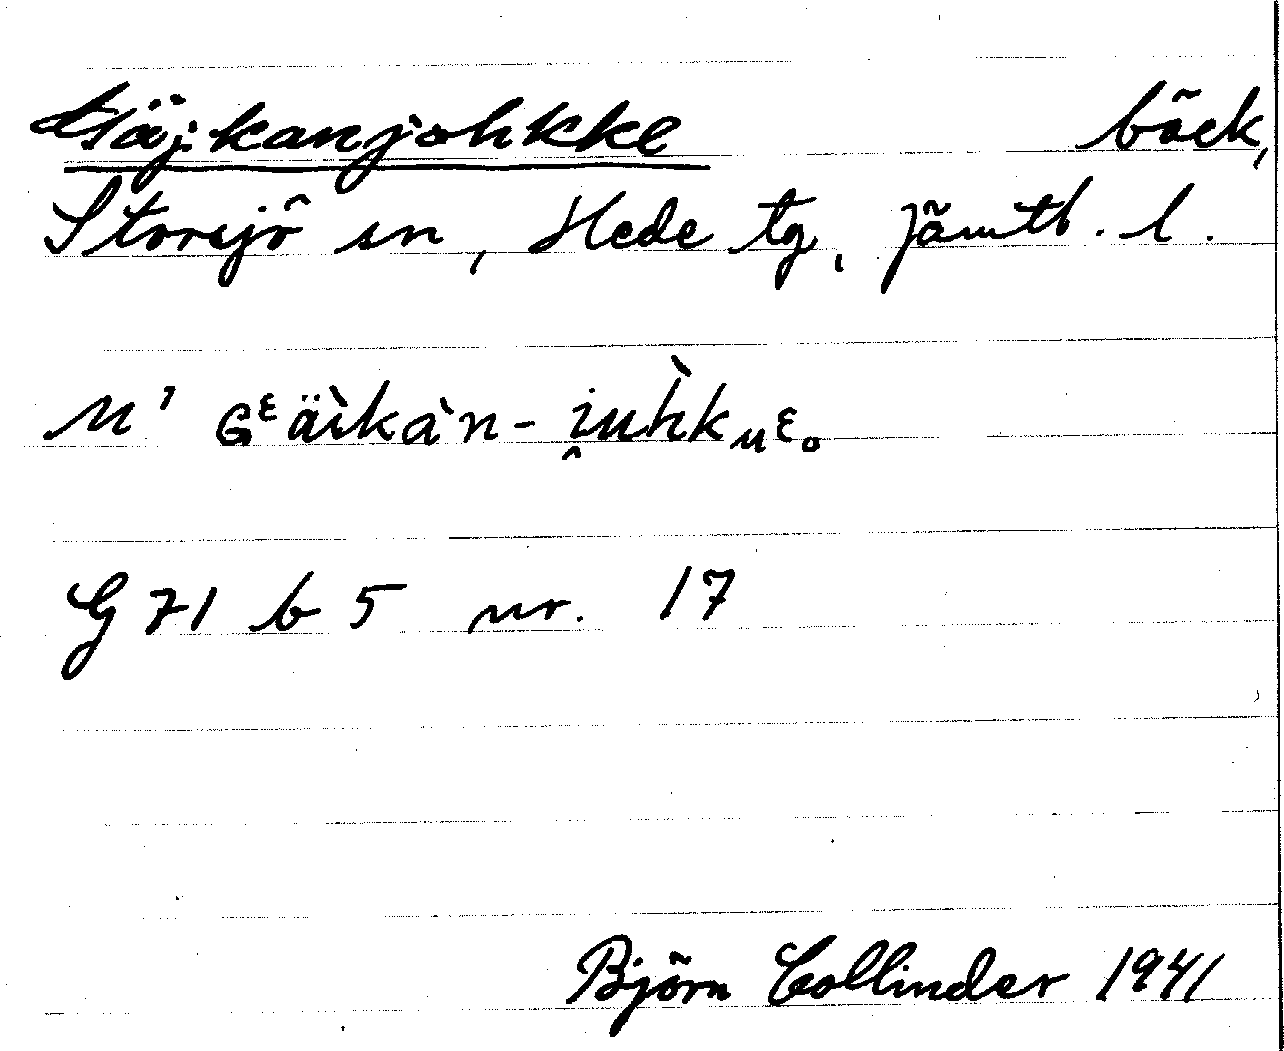 Gäjkanjohkke bäck,
Storsjö sn, Hede tg, Jämtl. l.
M' Gᵋäìkàn-i̭uh̀kᵤᵋ.
G 71 b 5 nr. 17
Björn Collinder 1941